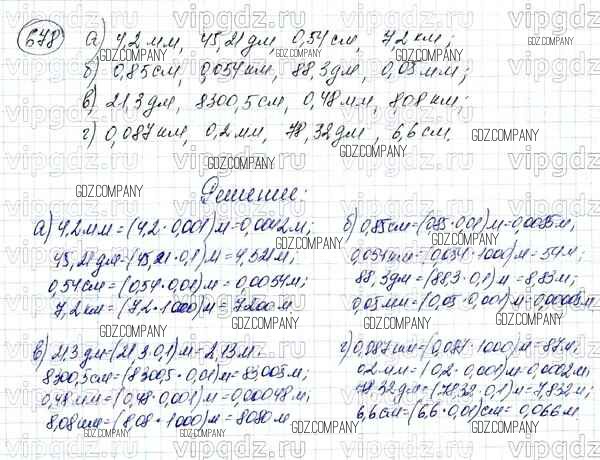 678
а) 4,2 мм, 45,21 дм, 0,54 см, 7,2 км;
б) 0,85 см, 0,054 км, 88,3 дм, 0,03 мм;
в) 21,3 дм, 8300,5 см, 0,48 мм, 8,08 км;
г) 0,087 км, 0,2 мм, 78,32 дм, 6,6 см.
Решение:
а) 4,2 мм = (4,2 · 0,001) м = 0,0042 м;
45,21 дм = (45,21 · 0,1) м = 4,521 м;
0,54 см = (0,54 · 0,01) м = 0,0054 м;
7,2 км = (7,2 · 1000) м = 7200 м.
б) 0,85 см = (0,85 · 0,01) м = 0,0085 м;
0,054 км = (0,054 · 1000) м = 54 м;
88,3 дм = (88,3 · 0,1) м = 8,83 м;
0,03 мм = (0,03 · 0,001) м = 0,00003 м.
в) 21,3 дм = (21,3 · 0,1) м = 2,13 м;
8300,5 см = (8300,5 · 0,01) м = 83,005 м;
0,48 мм = (0,48 · 0,001) м = 0,00048 м;
8,08 км = (8,08 · 1000) м = 8080 м.
г) 0,087 км = (0,087 · 1000) м = 87 м;
0,2 мм = (0,2 · 0,001) м = 0,0002 м;
78,32 дм = (78,32 · 0,1) м = 7,832 м;
6,6 см = (6,6 · 0,01) см = 0,066 м.
vipgdz.ru
GDZ.COMPANY